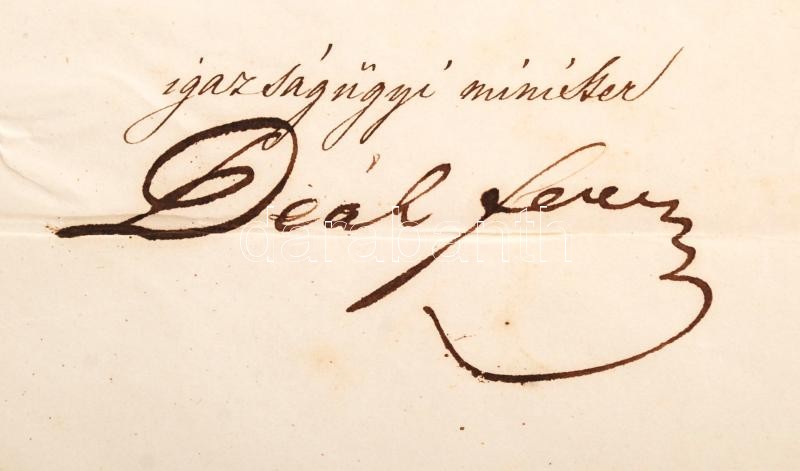 igazságügyi minister
Deák Ferencz
darabanth